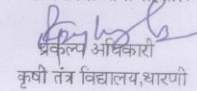 प्रकल्प अधिकारी
कृषी तंत्र विद्यालय,धारणी